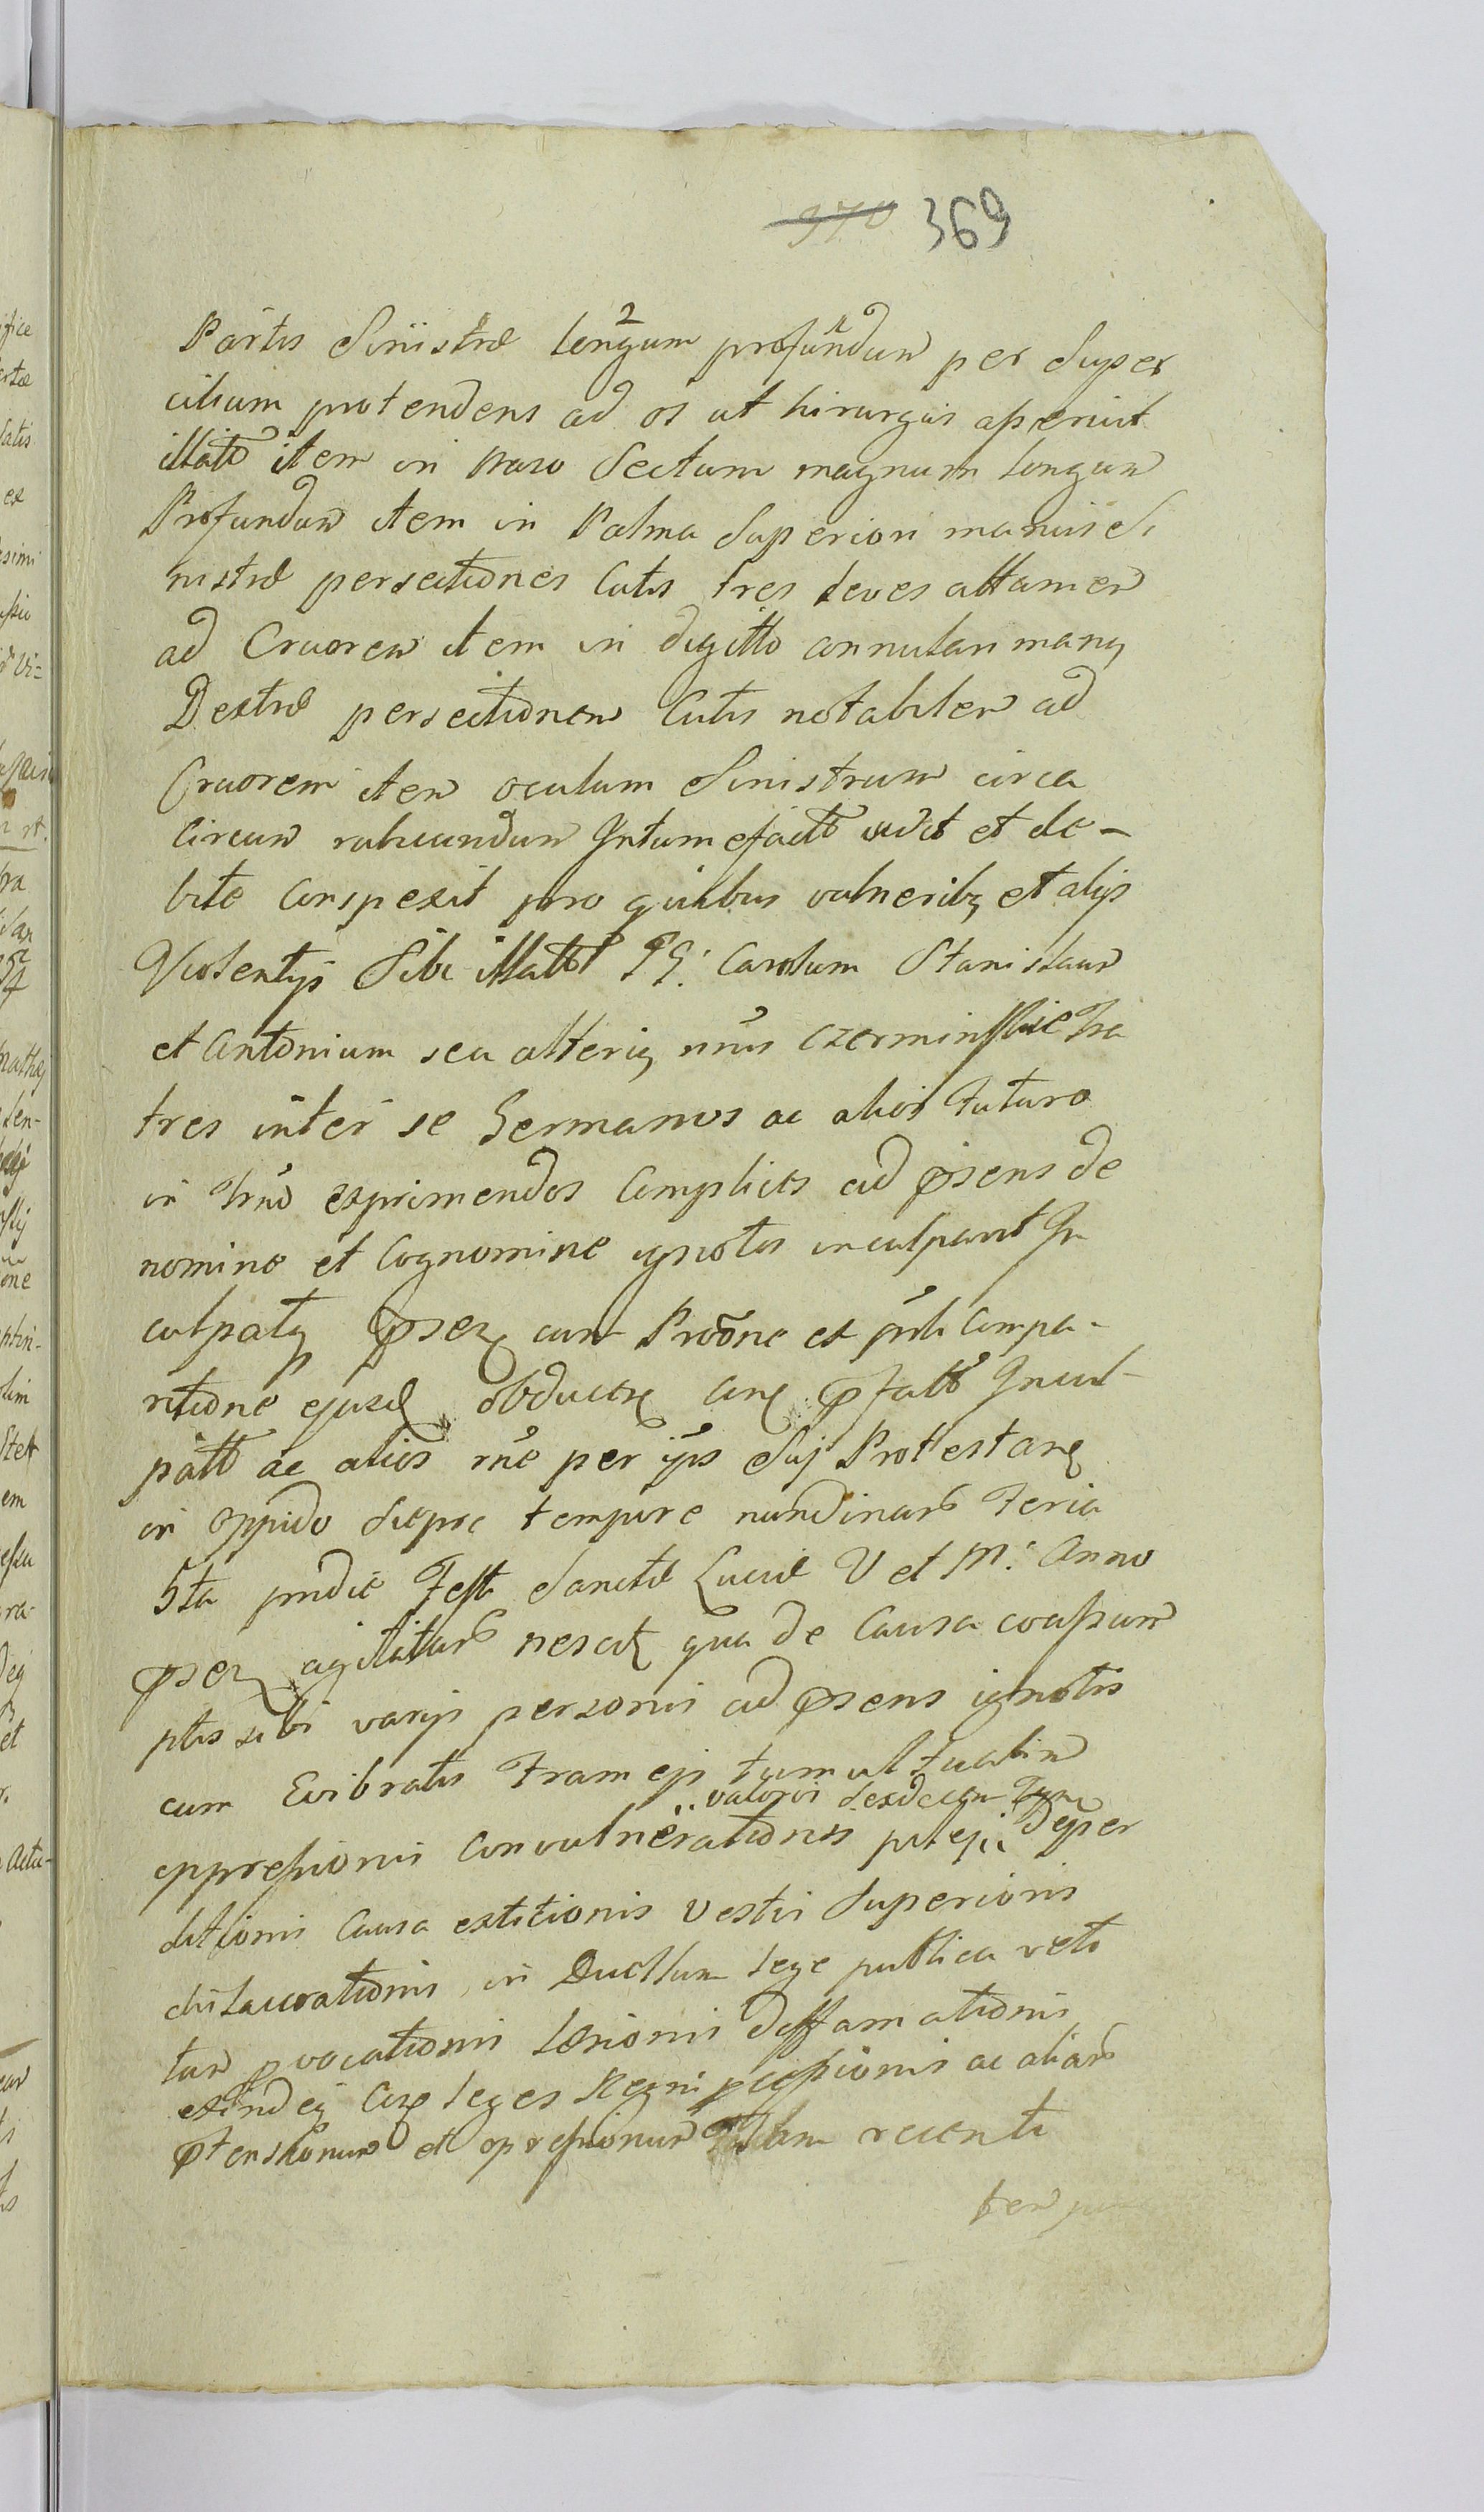 370 369
Partis Sinistræ longum profundum per Super
cilium protendens ad os ut hirurgus asseruit
illatũ item in naso Sectum magnum longum
Profundum item in Palma Superiori manus Si
nistræ persectiones Cutis tres leves attamen
ad Cruorem item in digitto annulari manus
Dextræ persectionem Cutis notabilem ad
Cruorem item oculum Sinistrum circa
Circum rubicundum Intumefactũ vidit et de-
bite Conspexit pro quibus vulneribꝫ et alijs
Violentijs Sibi illatis GG: Carolum Stanislaum
et Antonium seu alterius nñis Czerminskie Fra
tres inter se Germanos ac alios Futuro
in Trno exprimendos Complices ad pñsens de
nomine et Cognomine ignotos inculpavit In
culpatqꝫ psenꝫ cum Prõne et pñli Compa-
ritione ejusdꝫ obductꝫ Cinꝫ pfatos Incul-
patos ac alios rñe per ijs Suj Protestanꝫ
in Oppido Siepsc tempore nundinarũ Feria
5ta pridie Festi Sanctæ Luciæ V et M: Anno
psenꝫ agitatarũ nescitꝫ qua de Causa coassum
ptis sibi varijs personis ad psens ignotis
cum Evibratis Frameis tumultualim
valoris Sexdecem Tym
oppressionis Convulnerationis pilej Deper
ditionis Causa extitionis Vestis Superioris
dilacerationis in Duellum lege publica veti
tum pvocationis læsionis deffamationis
exindeqꝫ Cirꝫ leges Regni pcussionis ac aliarũ
ptensionum et opressionum recenti
ter